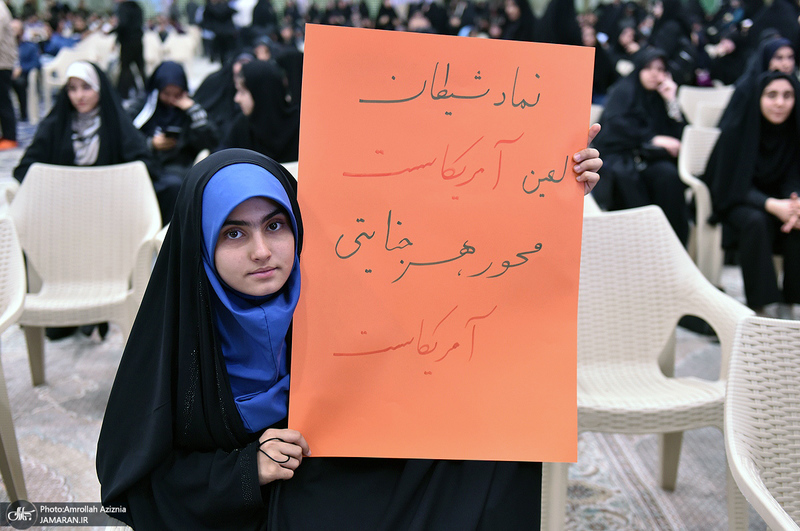 نماد شیطان
لعین آمریکاست
محور هر جنایتی
آمریکاست
Photo:Amrollah Aziznia
JAMARAN.IR